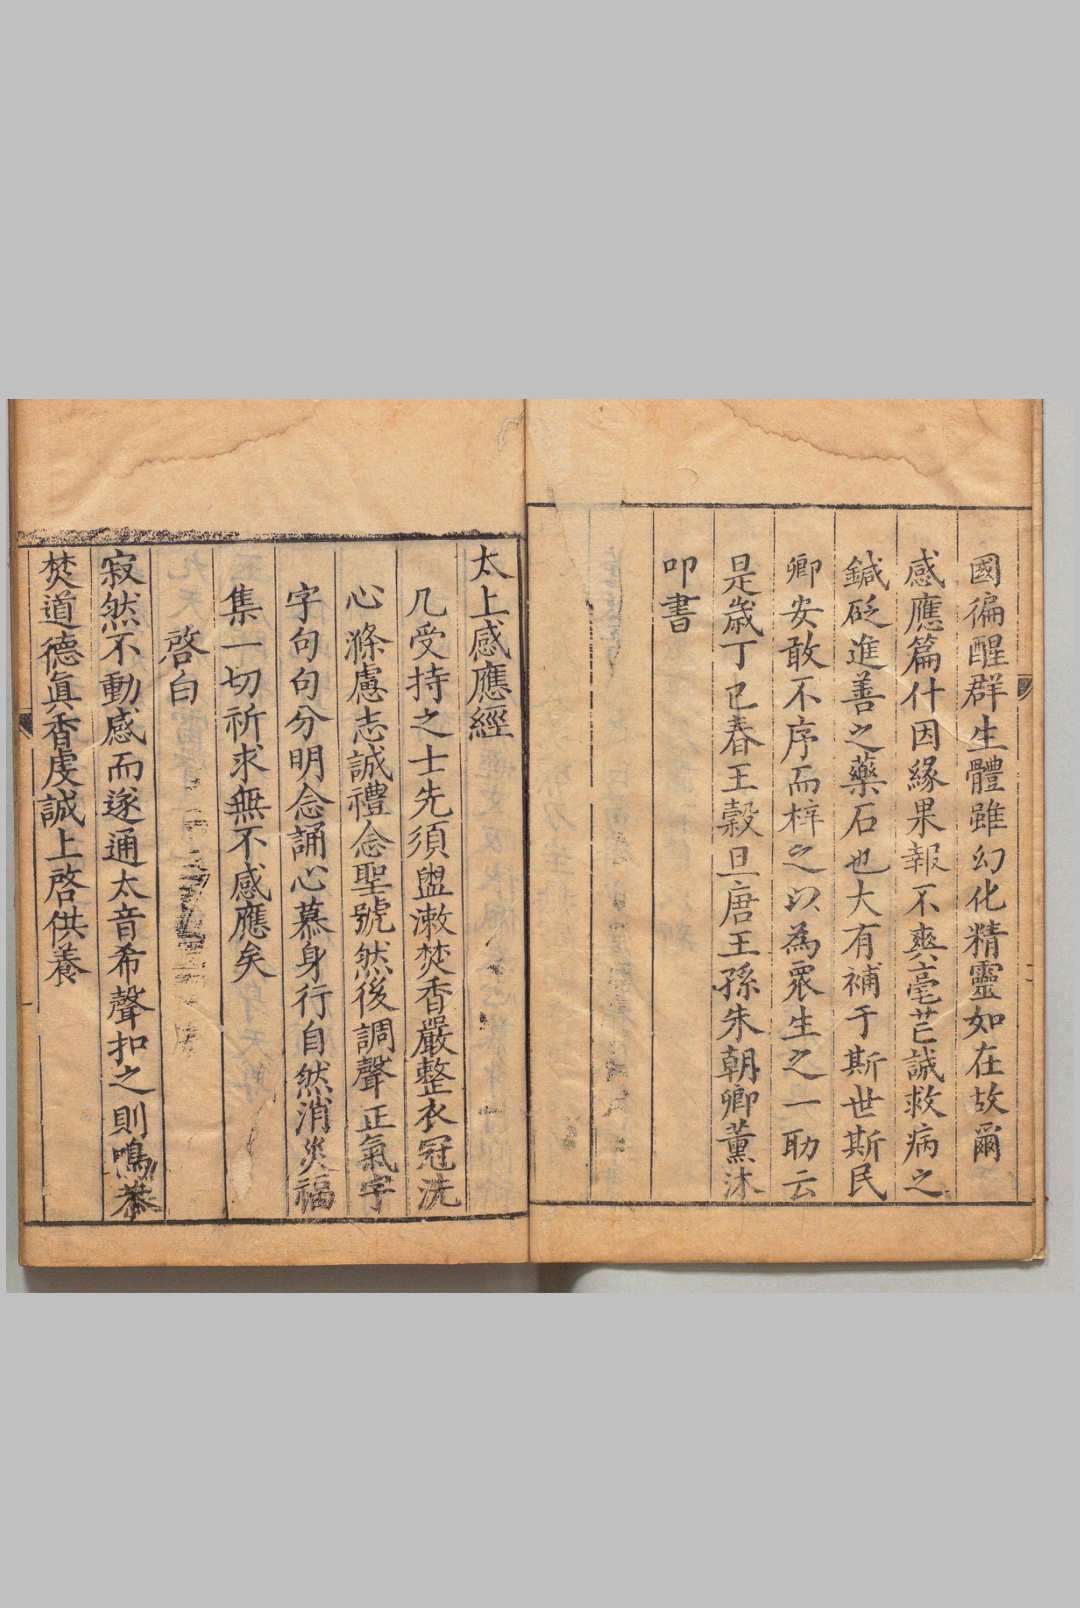 國徧醒群生體雖幻化精靈如在故爾
感應篇什因緣果報不爽毫芒誠救病之
鍼砭進善之藥石也大有補于斯世斯民
卿安敢不序而梓之以為衆生之一助云
是歲丁巳春王穀旦唐王孫朱朝卿薰沐
叩書
太上感應經
凢受持之士先須盥漱焚香嚴整衣冠洗
心滌慮志誠禮念聖號然後調聲正氣字
字句句分明念誦心慕身行自然消災福
集一切祈求無不感應矣
啓白
寂然不動感而遂通太音希聲扣之則鳴恭
焚道德眞香虔誠上啓供養